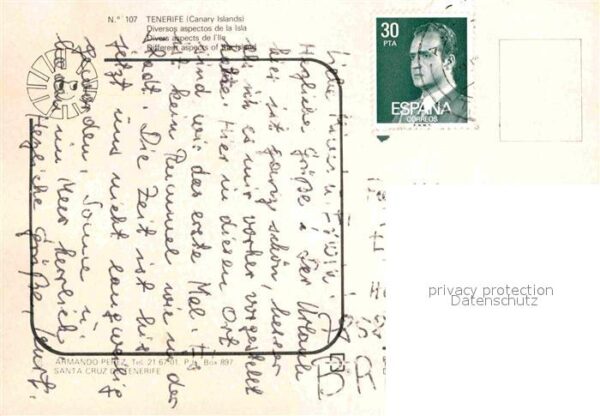 N.º 107 TENERIFE (Canary Islands)
Diversos aspectos de la Isla
Divers aspects de l'Ile
Different aspects of the Island
30
PTA
ESPAÑA
CORREOS
Liebe
Herzliche Grüße. Der Urlaub
hier ist ganz schön, besser
als ich es mir vorher vorgestellt
hatte. Hier in diesem Ort
sind wir das erste Mal. Es
ist kein Rummel wie in der
Stadt. Die Zeit ist hier
jetzt uns nicht langweilig
geworden. Sonne u.
baden im Meer herrlich
Herzliche Grüße,
ARMANDO PEREZ, Tel. 21 67 01. P. O. Box 897
SANTA CRUZ DE TENERIFE
privacy protection
Datenschutz